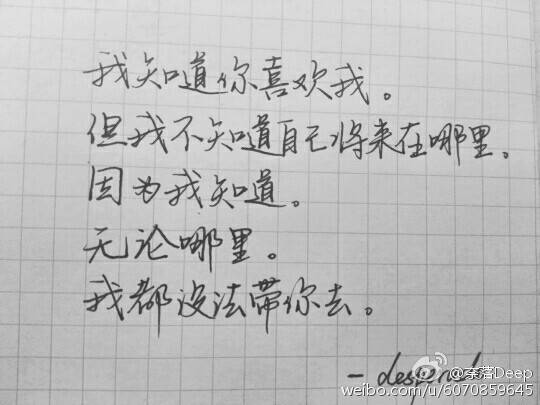 我知道你喜欢我。
但我不知道自己将来在哪里。
因为我知道。
无论哪里。
我都没法带你去。
@奈落Deep
weibo.com/u/6070859645